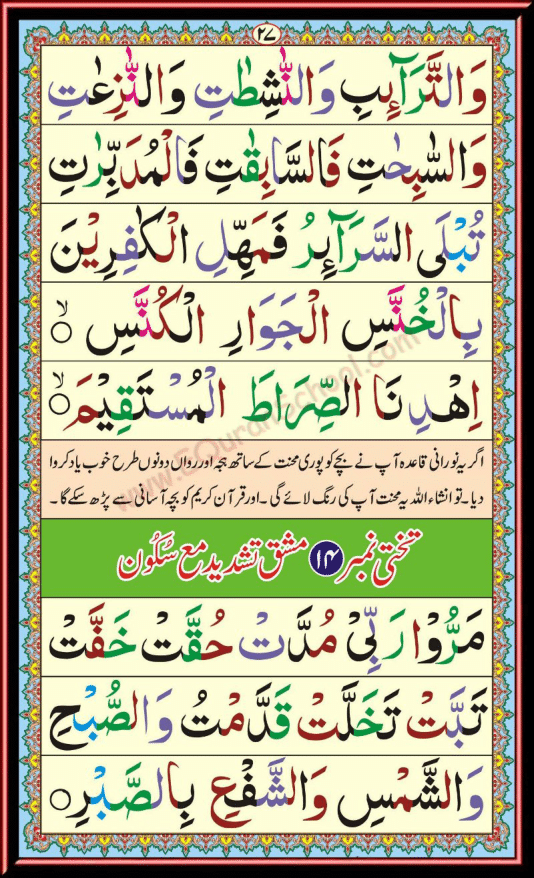 ٢٧
وَالتَّرَآئِبِ وَالنّٰشِطٰتِ وَالنّٰزِعٰتِ
وَالسّٰبِحٰتِ فَالسَّابِقٰتِ فَالْمُدَبِّرٰتِ
تُبْلَى السَّرَآئِرُ فَمَهِّلِ الْكٰفِرِيْنَ
بِالْخُنَّسِ الْجَوَارِ الْكُنَّسِ ۙ
اِهْدِنَا الصِّرَاطَ الْمُسْتَقِيْمَ ۙ
اگر یہ نورانی قاعدہ آپ نے بچے کو پوری محنت کے ساتھ ہجہ اور رواں دونوں طرح خوب یاد کروا
دیا۔ تو انشاء اللہ یہ محنت آپ کی رنگ لائے گی۔ اور قرآن کریم کو بچہ آسانی سے پڑھ سکے گا۔
تختی نمبر ١٤ مشق تشدید مع سکون
مَرُّوْا رَبِّىْ مُدَّتْ حُقَّتْ خَفَّتْ
تَبَّتْ تَخَلَّتْ قَدَّمْتُ وَالصُّبْحِ
وَالشَّمْسِ وَالشَّفْعِ بِالصَّبْرِ ○
www.eQuranSchool.com